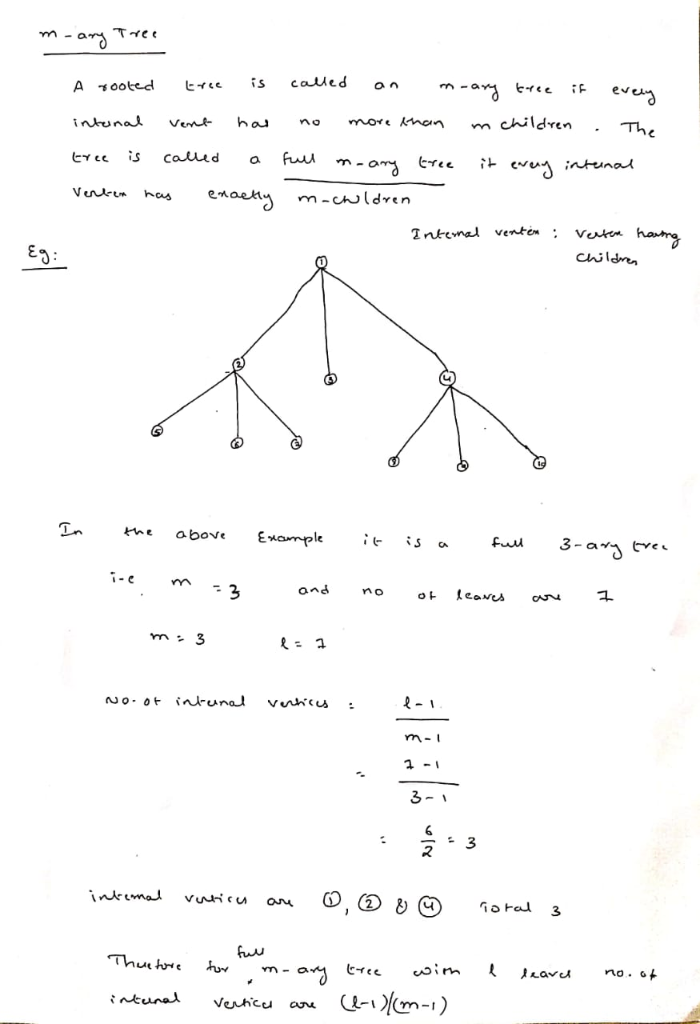 m-ary Tree
A rooted tree is called an m-ary tree if every
internal vert has no more than m children . The
tree is called a full m-ary tree if every internal
Vertex has exactly m-children
Internal vertex : vertex having
Children
Eg:
1
2
3
4
5
6
7
8
9
10
In the above Example it is a full 3-ary tree
i-e m = 3 and no of leaves are 7
m = 3 l = 7
No. of internal vertices = l-1
m-1
= 7-1
3-1
= 6/2 = 3
internal vertices are ①, ② & ④ Total 3
full
Therefore for m-ary tree with l leaves no. of
internal vertices are (l-1)/(m-1)